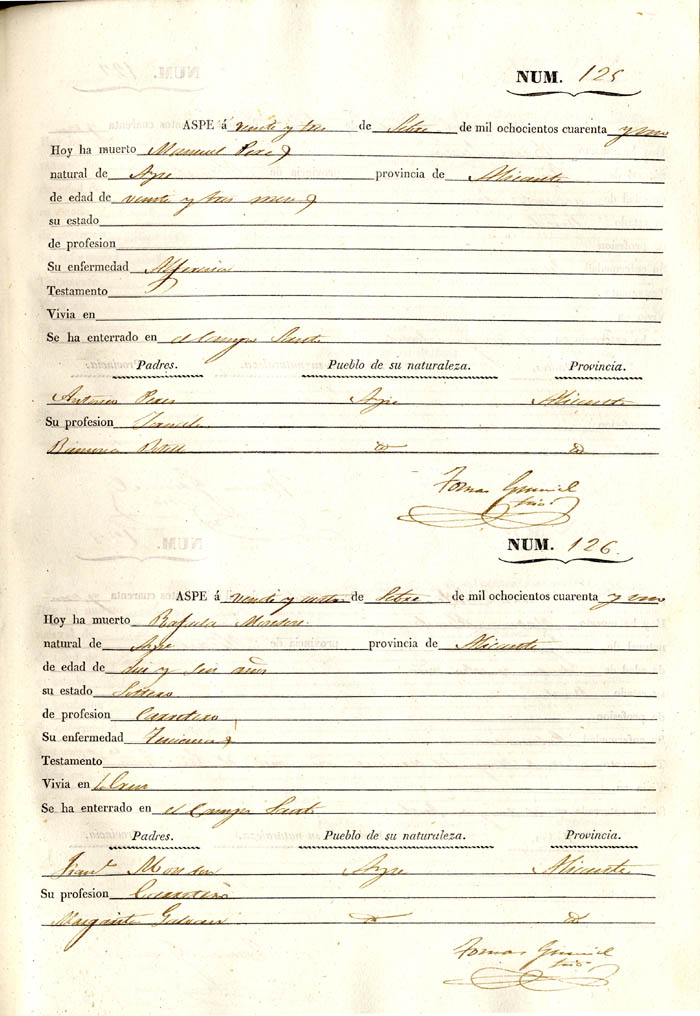 NUM. 125
ASPE á veinte y tres de Setre de mil ochocientos cuarenta y uno
Hoy ha muerto Manuel Perez
natural de Aspe provincia de Alicante
de edad de veinte y tres meses
su estado
de profesion
Su enfermedad Alferecia
Testamento
Vivia en
Se ha enterrado en el Campo Santo
Padres. Pueblo de su naturaleza. Provincia.
Antonio Perez Aspe Alicante
Su profesion
Ramona
Tomas
NUM. 126.
ASPE á veinte y cuatro de Setre de mil ochocientos cuarenta y uno
Hoy ha muerto Rafael
natural de Aspe provincia de Alicante
de edad de diez y seis años
su estado Soltero
de profesion Carretero
Su enfermedad
Testamento
Vivia en
Se ha enterrado en el Campo Santo
Padres. Pueblo de su naturaleza. Provincia.
Aspe Alicante
Su profesion Carretero
Margarita
Tomas